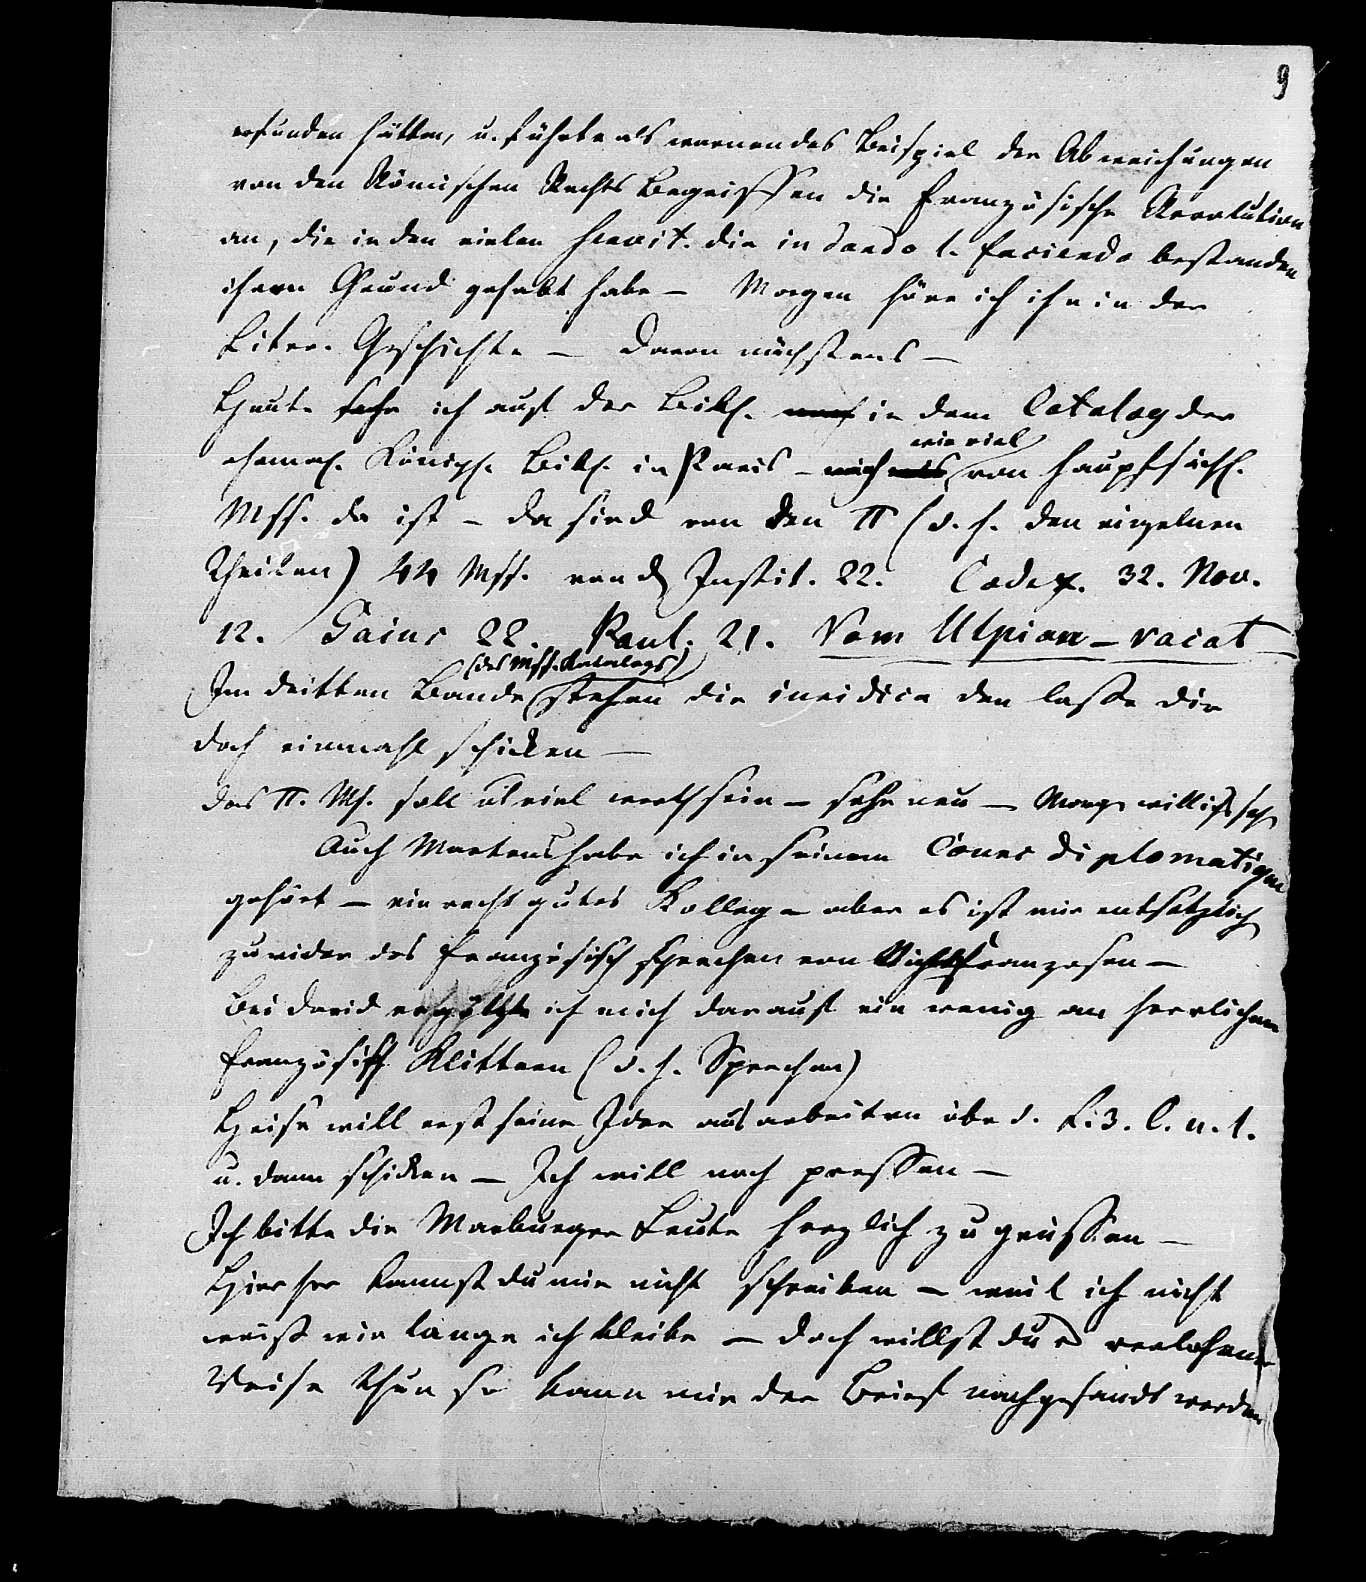 9
erfunden hätten, u. führte als warnendes Beispiel der Abweichungen
von den Römischen Rechts Begriffen die französische Revolution
an, die in den vielen servit. die in dando l. faciendo bestanden
ihren Grund gehabt habe — Morgen höre ich ihn in der
Liter. Geschichte — davon nächstens —
Heute sahe ich auf der Bibl. in dem Catalog der
ehemal. Königl. Bibl. in Paris — wie viel von hauptsächl.
Mss. da ist — da sind von den π (d. h. den einzelnen
Theilen) 44 Mss. von d Instit. 22. Codex. 32. Nov.
12. Gaius 22. Paul. 21. Vom Ulpian — vacat
Im dritten Bande (des Mss. Katalogs) stehen die iuridica den lasse dir
doch einmahl schicken —
das π. Ms. soll viel werth sein — sehr neu — Morg. will ichs sehn
Auch Martens habe ich in seinem Cours diplomatique
gehört — ein recht gutes Kolleg — aber es ist mir entsetzlich
zuwider das französisch sprechen von Nichtfranzosen —
Bei David ergötzte ich mich darauf ein wenig an herrlichem
französisch Klittern (d. h. Sprechen)
Heise will erst seine Idee ausarbeiten übe d. L. 3. C. u. l.
u. dann schicken — Ich will noch pressen —
Ich bitte die Marburger Leute herzlich zu grüssen —
Hierher kannst du mir nicht schreiben — weil ich nicht
weiß wie lange ich bleibe — doch willst du verlohrner
Weise thun so kann mir der Brief nachgesandt werden